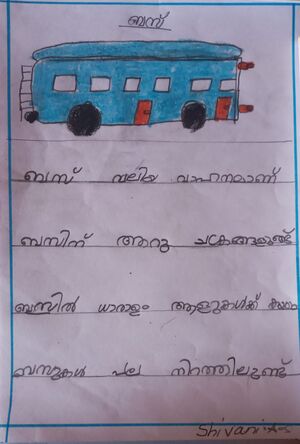 ബസ്
ബസ് വലിയ വാഹനമാണ്
ബസിന് ആറു ചക്രങ്ങളുണ്ട്
ബസിൽ ധാരാളം ആളുകൾക്ക്
ബസുകൾ പല നിറത്തിലുണ്ട്
Shivani